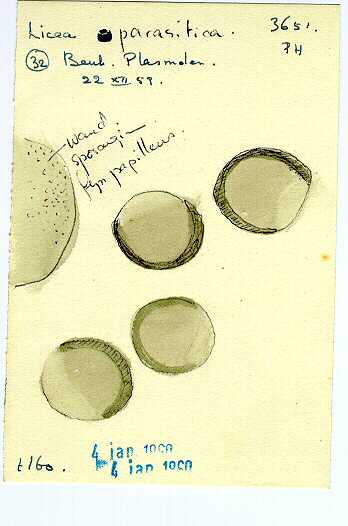 Licea parasitica.
3651.
PH
32 Beuk. Plasmolen.
22 XII 59.
wand
sporangia
fijn papilleus.
4 jan 1960
4 jan 1960
t 160.